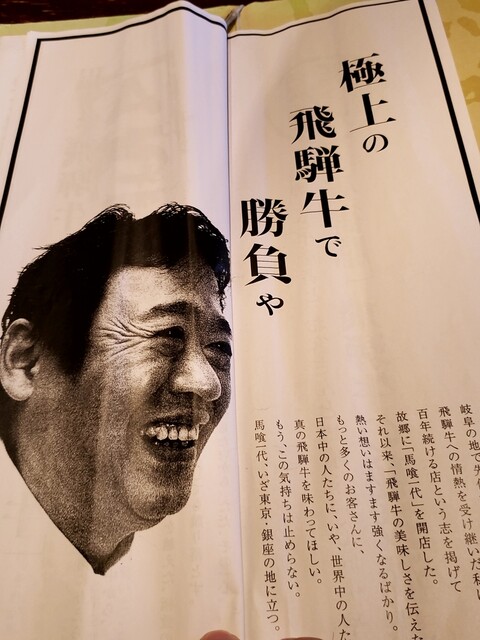 極上の
飛騨牛で
勝負や
岐阜の地で先代
飛騨牛への情熱を受け継いだ私は
百年続ける店という志を掲げて
故郷に「馬喰一代」を開店した。
それ以来、「飛騨牛の美味しさを伝えた
熱い想いはますます強くなるばかり。
もっと多くのお客さんに、
日本中の人たちに、いや、世界中の人た
真の飛騨牛を味わってほしい。
もう、この気持ちは止められない。
馬喰一代、いざ東京・銀座の地に立つ。